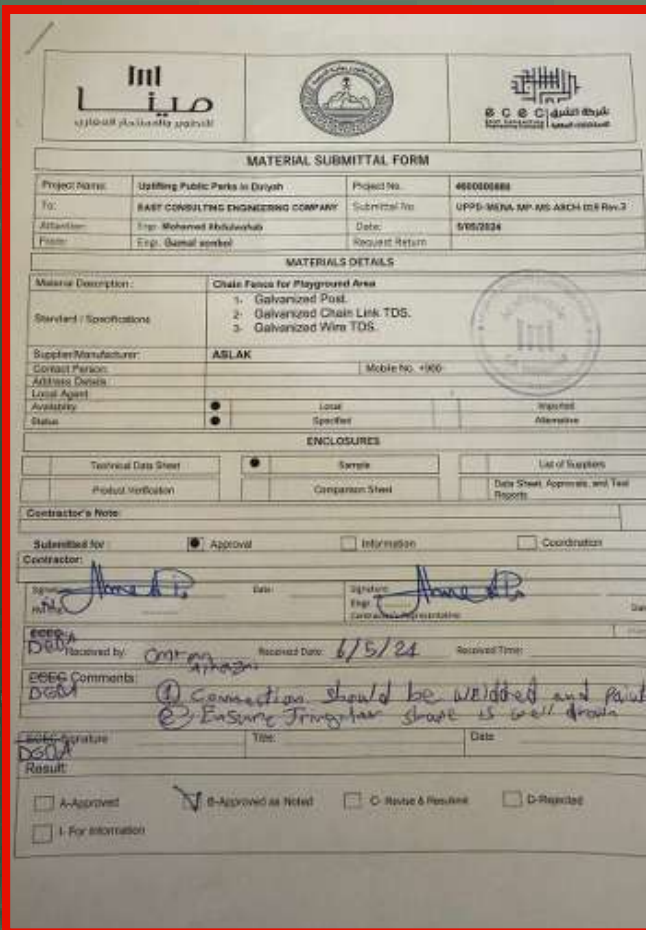 مينا
للتطوير والاستثمار العقاري
ECEC شركة الشرق
MATERIAL SUBMITTAL FORM
Project Name: Uplifting Public Parks in Diriyah Project No.
To: EAST CONSULTING ENGINEERING COMPANY Submittal No UPPD-MENA-MP-MS-ARCH-019 Rev.3
Attention: Engr. Mohamed Abdulwahab Date: 5/05/2024
From: Engr. Gamal Request Return
MATERIALS DETAILS
Material Description: Chain Fence for Playground Area
Standard / Specifications
1- Galvanized Post.
2- Galvanized Chain Link TDS.
3- Galvanized Wire TDS.
Supplier/Manufacturer: ASLAK
Contact Person: Mobile No. +966
Address Details:
Local Agent
Availability Local Imported
Status Specified Alternative
ENCLOSURES
Technical Data Sheet Sample List of Suppliers
Product Verification Comparison Sheet Data Sheet, Approvals, and Test Reports
Contractor's Note:
Submitted for : Approval Information Coordination
Contractor:
Signature Date: Signature
Engr.
Contractor's Representative
ECEC DGDA Received by: Received Date: 6/5/24 Received Time:
ECEC Comments:
DGDA
① Connection should be welded and Paint
② Ensure shape is well
ECEC Signature Title: Date
DGDA
Result:
A-Approved B-Approved as Noted C- Revise & Resubmit D-Rejected
I- For Information